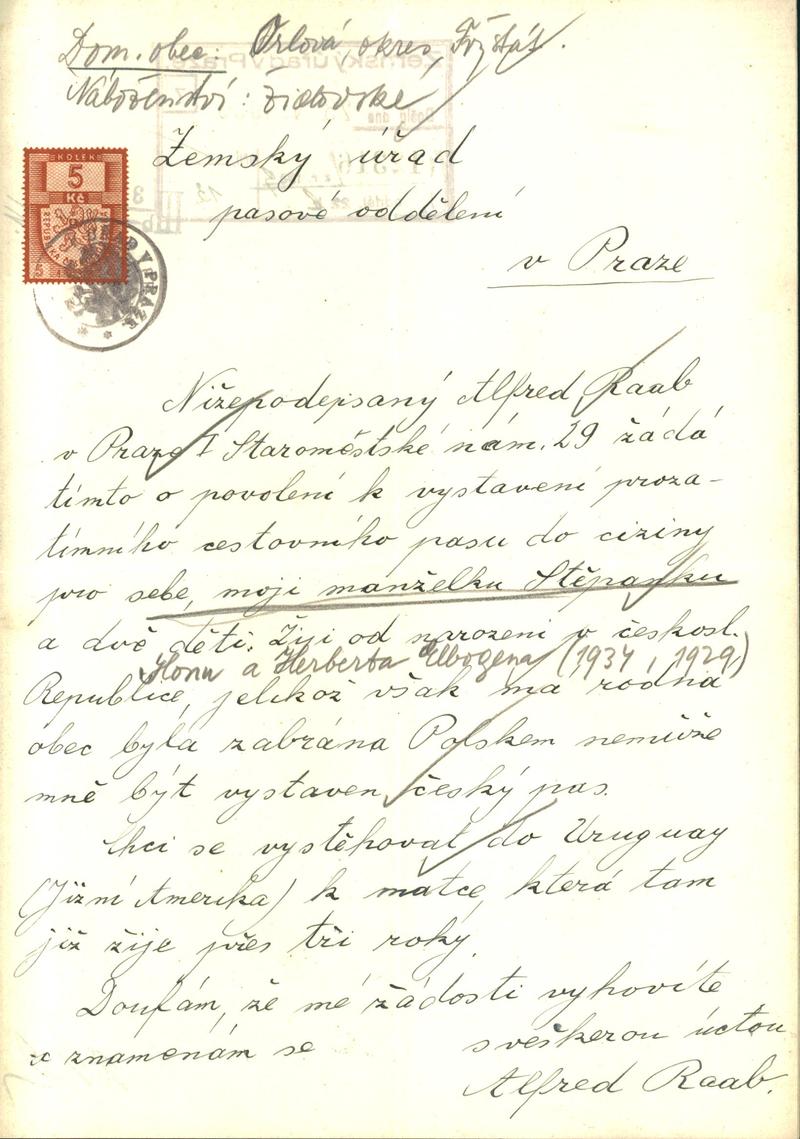 Dom. obec: Orlová, okres, Fryštát.
Náboženství: židovské
Zemský úřad
pasové oddělení
v Praze
KOLEK
5
Kč
V PRAZE
Nížepodepsaný Alfred Raab
v Praze I Staroměstské nám. 29 žádá
tímto o povolení k vystavení proza-
tímního cestovního pasu do ciziny
pro sebe, moji manželku Štěpanku
a dvě děti. Žiji od narození v českosl.
Ilonu a Herberta Elbogena (1934, 1929)
Republice, jelikož však má rodná
obec byla zabrána Polskem nemůže
mně být vystaven český pas.
Chci se vystěhovat do Uruguay
(Jižní Amerika) k matce, která tam
již žije přes tři roky.
Doufám, že mé žádosti vyhovíte
a znamenám se
s veškerou úctou
Alfred Raab.